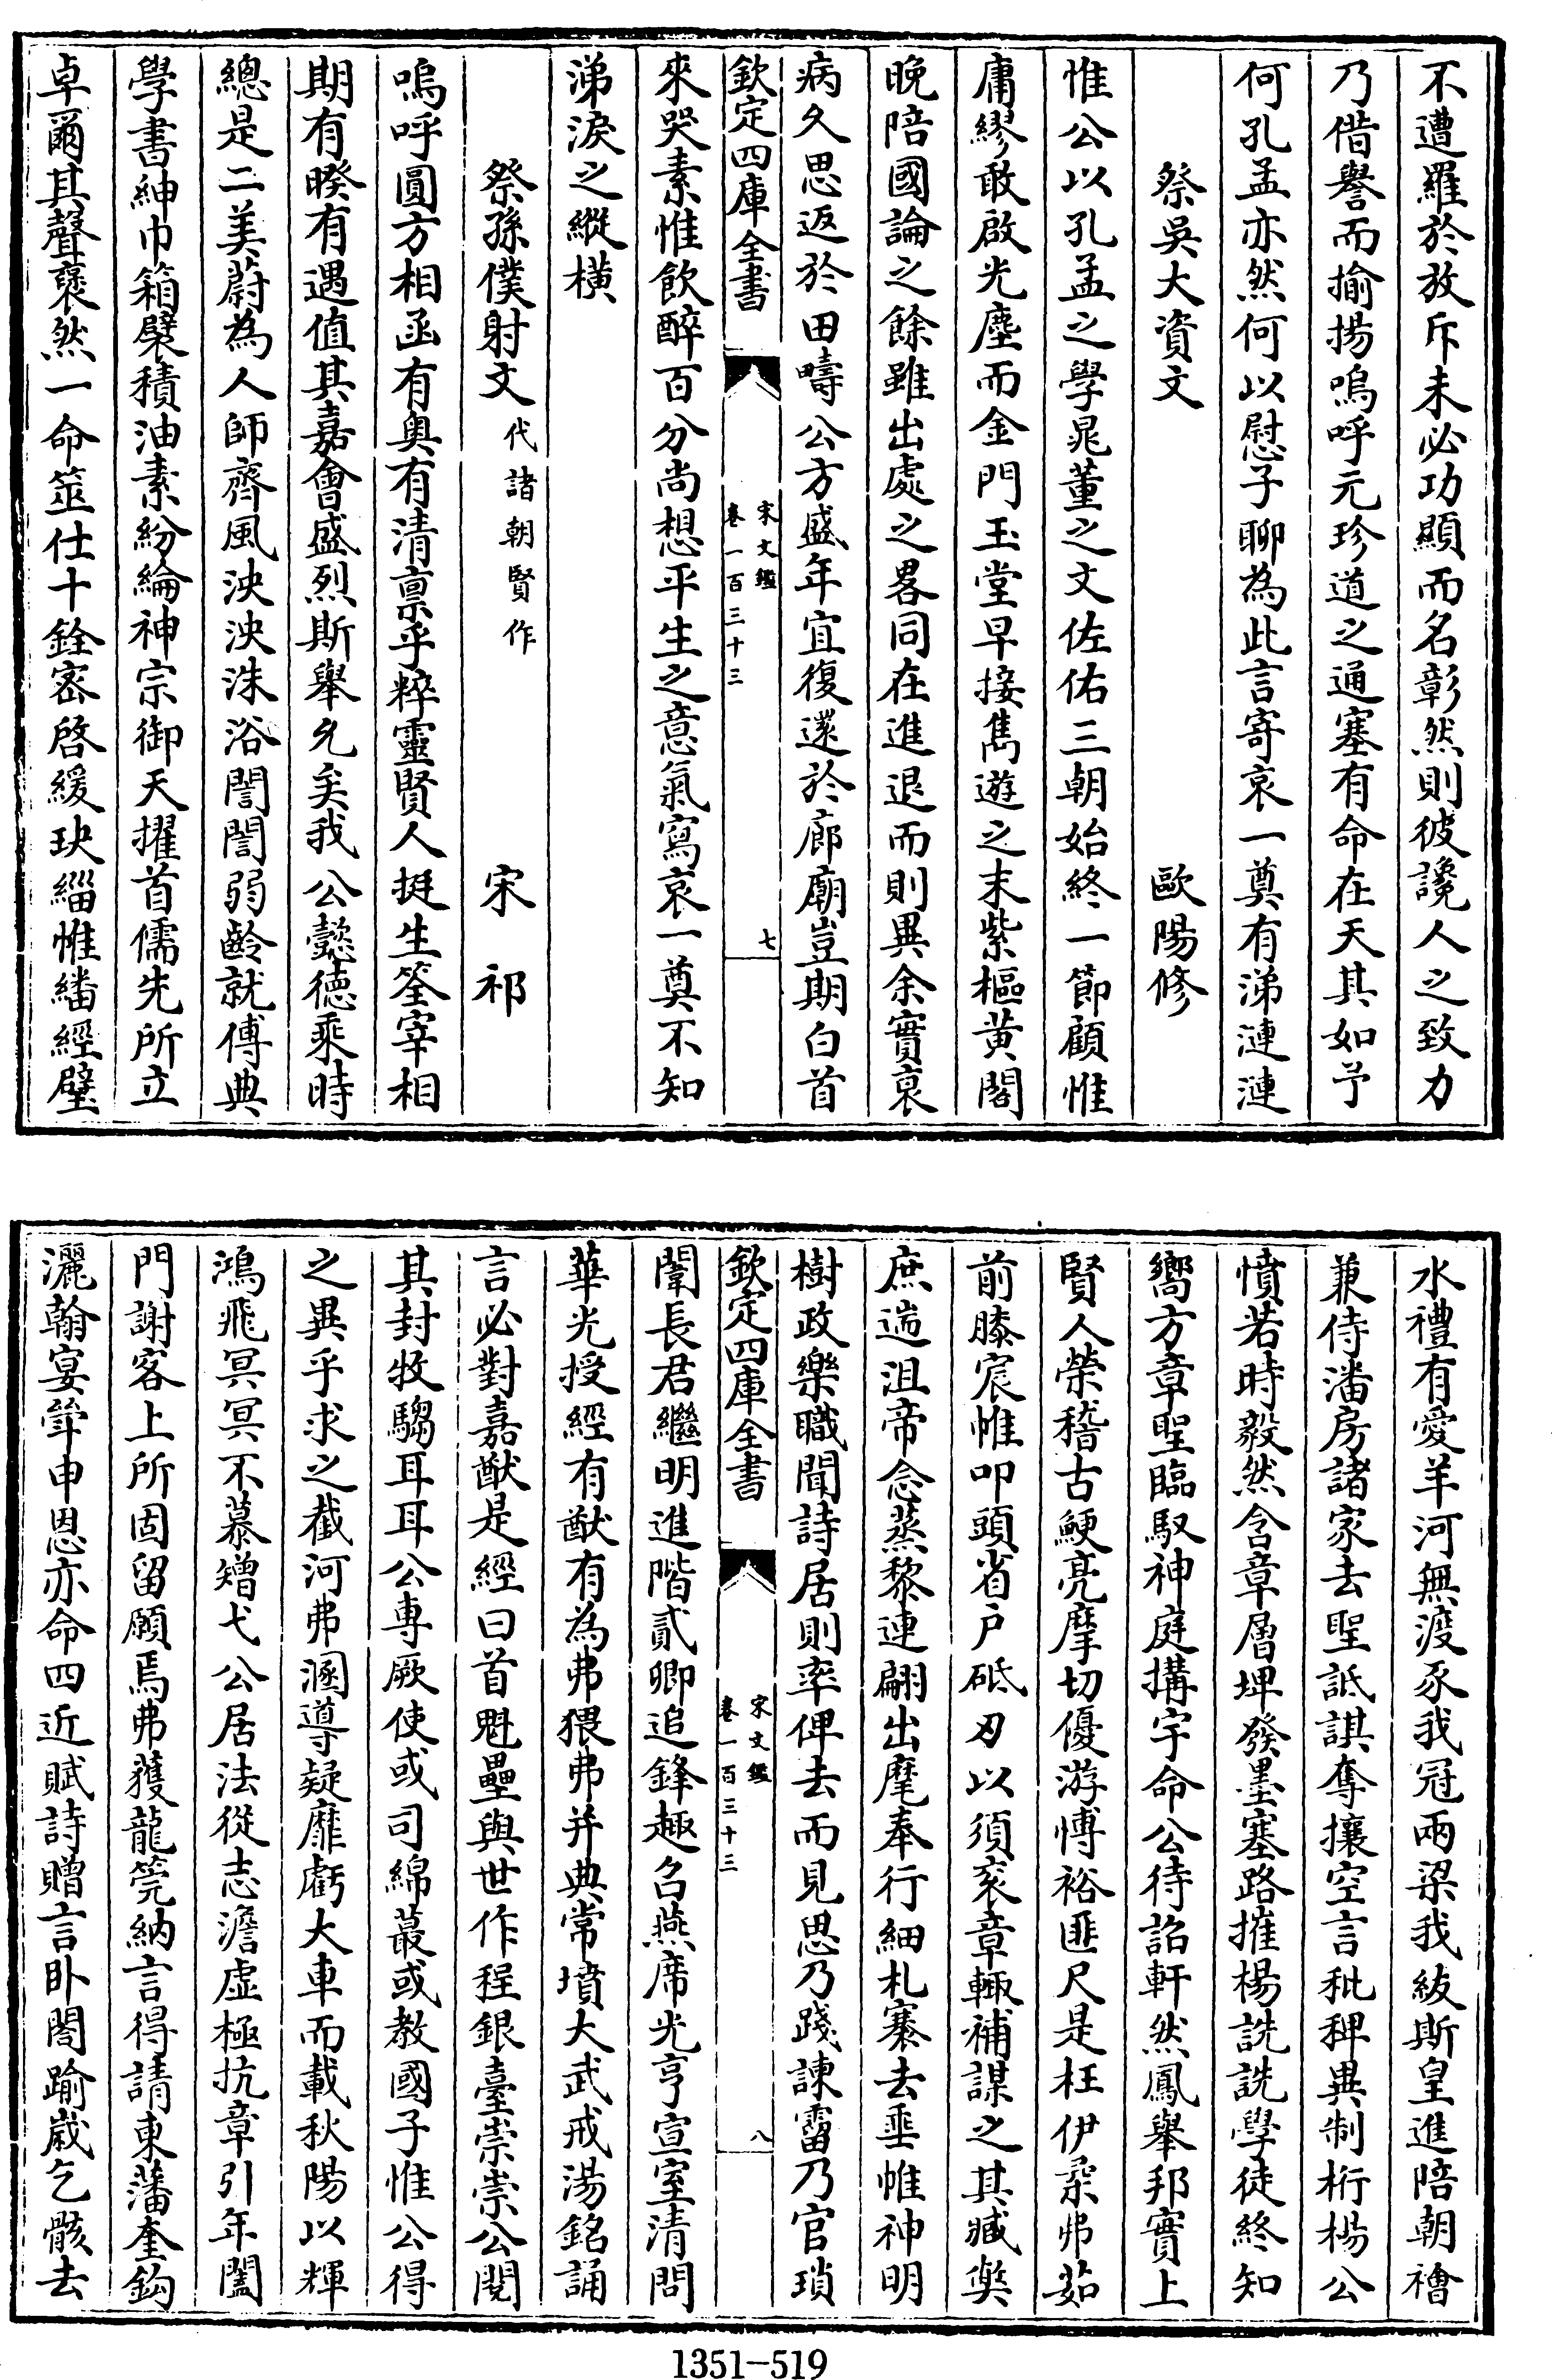 不遭羅於放斥未必功顯而名彰然則彼讒人之致力
乃借譽而揄揚嗚呼元珍道之通塞有命在天其如予
何孔孟亦然何以慰子聊為此言寄哀一奠有涕漣漣
祭吳大資文 歐陽修
惟公以孔孟之學晁董之文佐佑三朝始終一節顧惟
庸繆敢啟光塵而金門玉堂早接雋遊之末紫樞黄閣
晚陪國論之餘雖出處之畧同在進退而則異余實衰
病久思返於田疇公方盛年宜復還於廊廟豈期白首
欽定四庫全書 宋文鑑 卷一百三十三 七
來哭素惟飲醉百分尚想平生之意氣寫哀一奠不知
涕淚之縱橫
祭孫僕射文 代諸朝賢作 宋祁
嗚呼圓方相函有奥有清禀乎粹靈賢人挺生筌宰相
期有暌有遇值其嘉會盛烈斯舉允矣我公懿德乘時
總是二美蔚為人師齊風泱泱洙浴誾誾弱齡就傅典
學書紳巾箱襞積油素紛綸神宗御天擢首儒先所立
卓爾其聲褎然一命筮仕十銓宻啓緩玦緇惟繙經璧
水禮有愛羊河無渡豕我冠兩梁我紱斯皇進陪朝禬
兼侍潘房諸家去聖詆諆奪攘空言秕稗異制桁楊公
憤若時毅然含章層埤發墨塞路摧楊詵詵學徒終知
嚮方章聖臨馭神庭搆宇命公待詔軒然鳳舉邦實上
賢人榮稽古鯁亮摩切優游博裕匪尺是枉伊桑弗茹
前膝宸帷叩頭省户砥刃以須衮章輙補謀之其臧奠
庶遄沮帝念蒸黎連翩出麾奉行細札褰去垂帷神明
樹政樂職聞詩居則率俾去而見思乃踐諫霤乃官瑣
欽定四庫全書 宋文鑑 卷一百三十三 八
闈長君繼明進階貳卿追鋒趣召燕席光亨宣室清問
華光授經有猷有為弗猥弗并典常墳大武戒湯銘誦
言必對嘉猷是經曰首魁壘與世作程銀臺崇崇公閱
其封牧騶耳耳公專厥使或司綿蕞或教國子惟公得
之異乎求之截河弗溷導疑靡虧大車而載秋陽以輝
鴻飛冥冥不慕矰弋公居法從志澹虚極抗章引年闔
門謝客上所固留願焉弗獲龍筦納言得請東藩奎鈎
灑翰宴斝申恩亦命四近賦詩贈言卧閤踰嵗乞骸去
1351-519